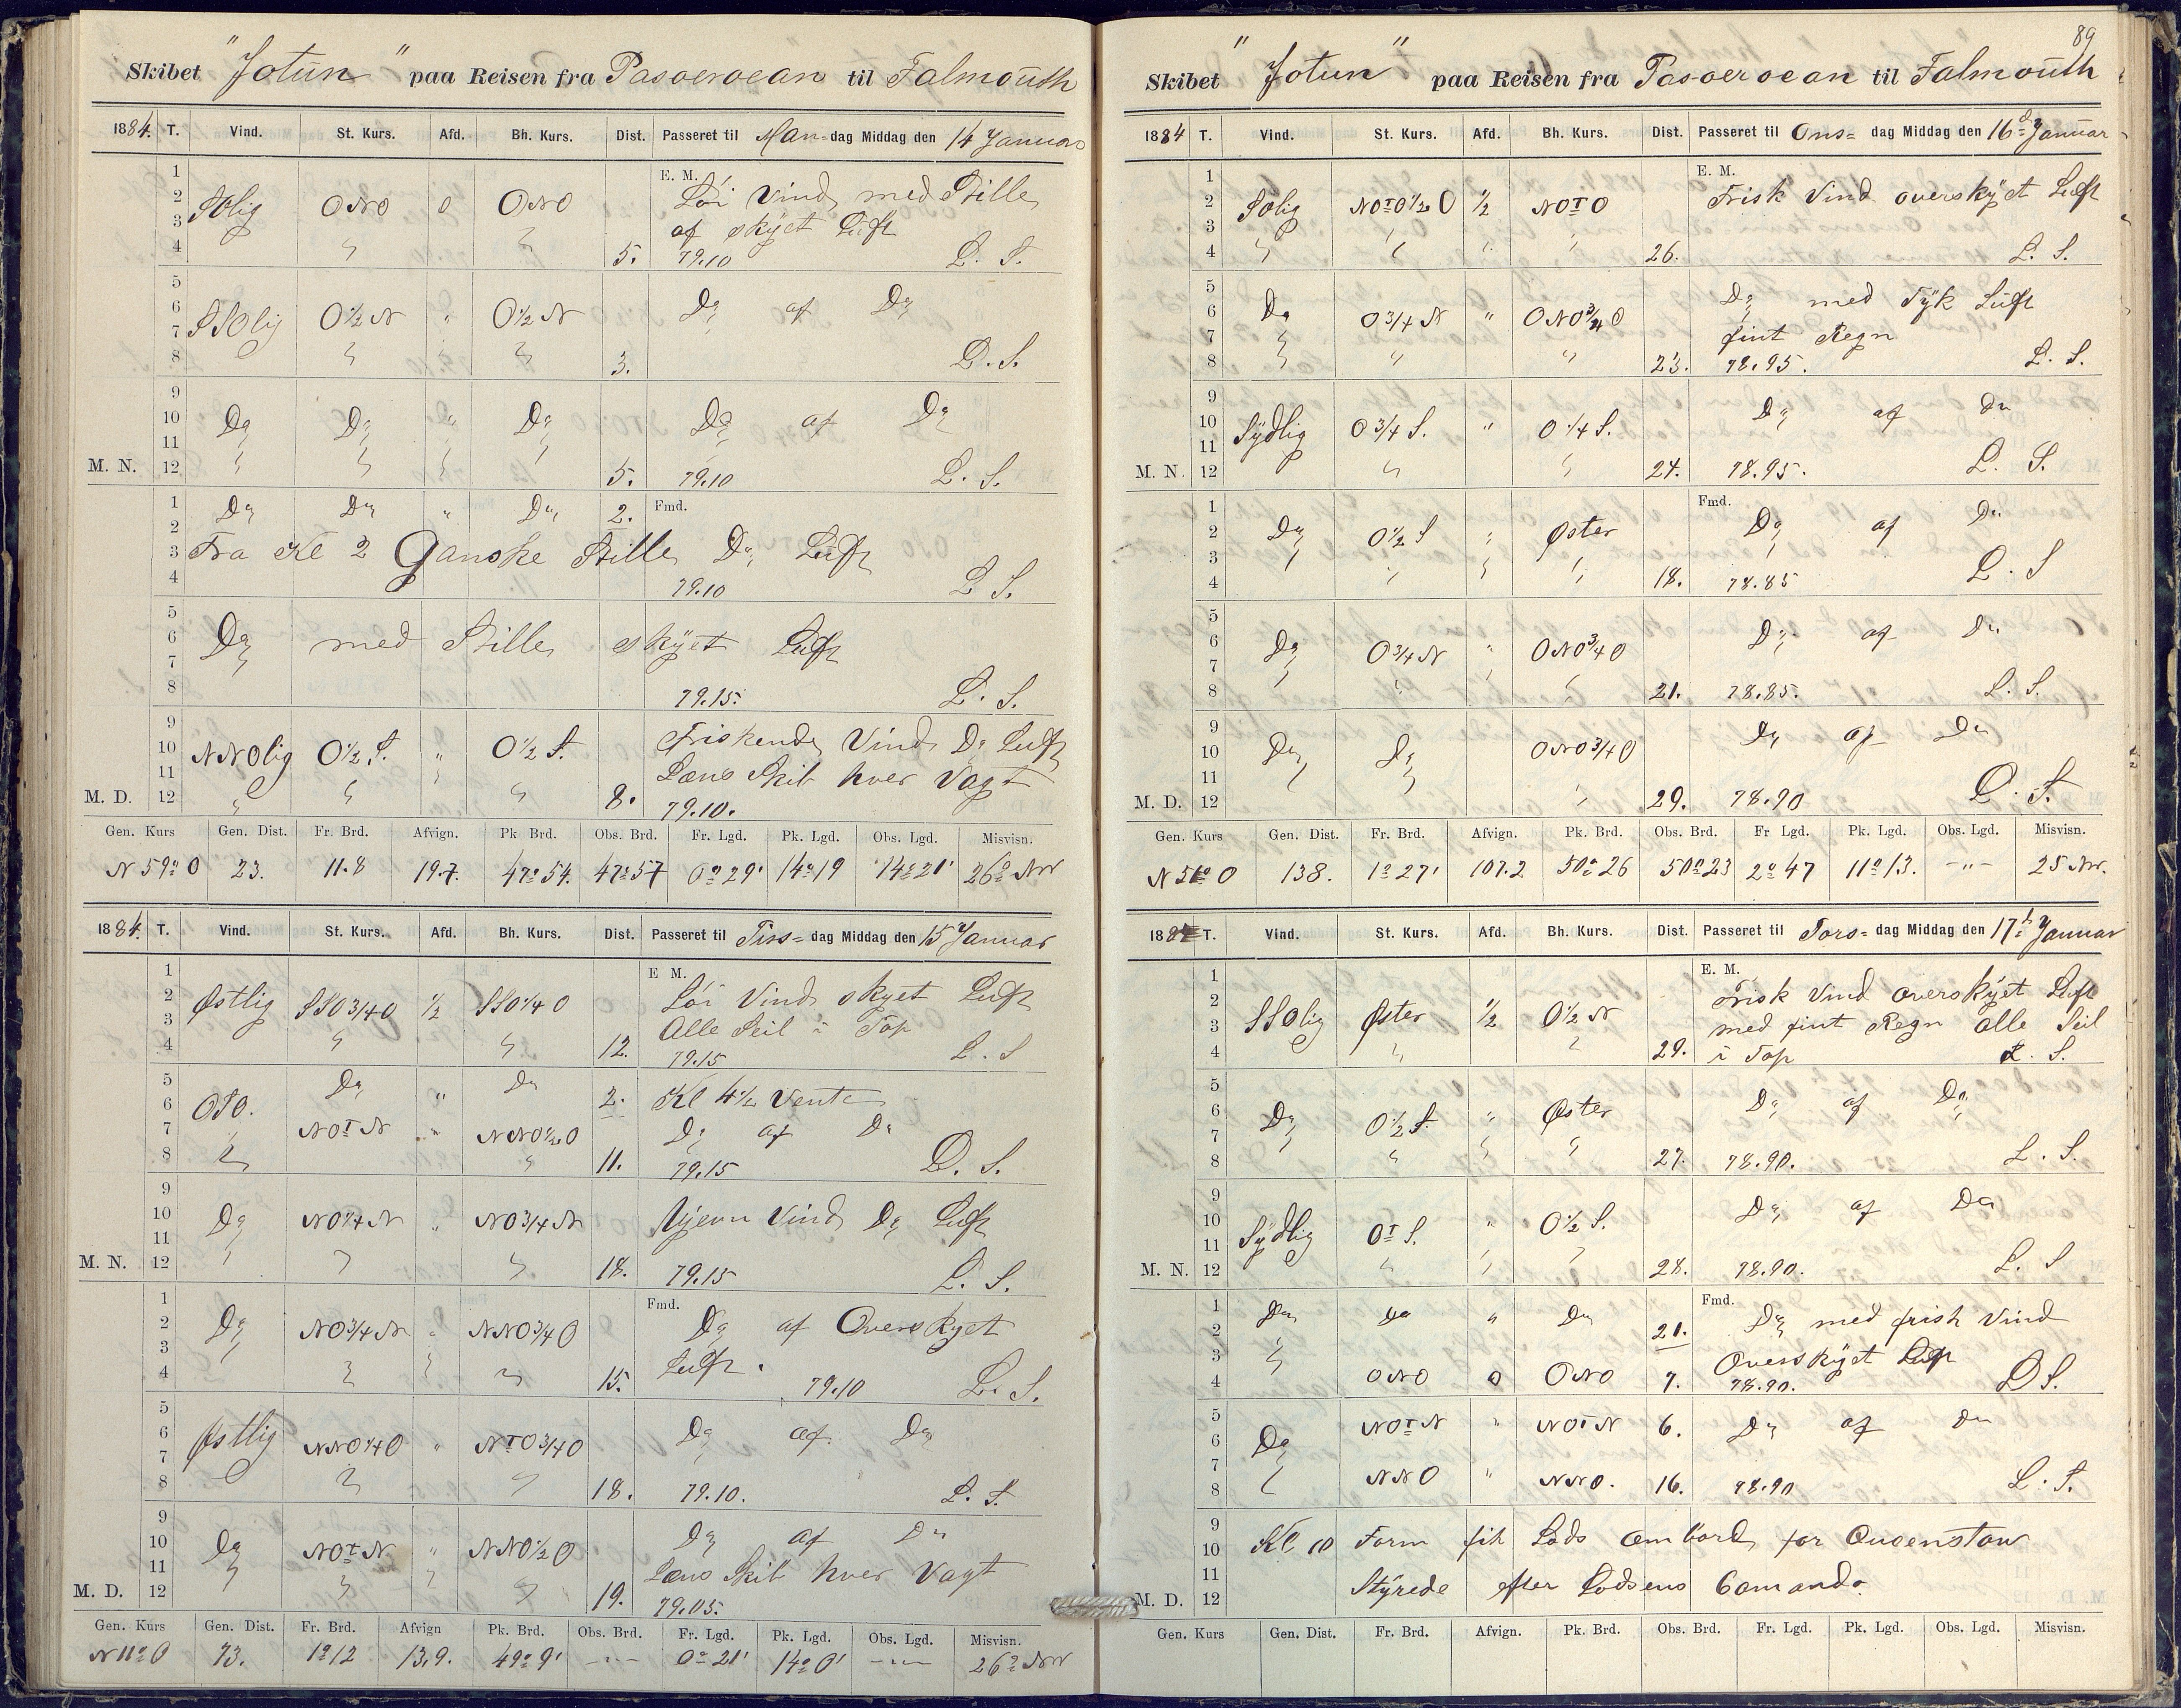 Skibet "Jotun" paa Reisen fra Pasoeroean til Falmouth
1884. T. Vind. St. Kurs. Afd. Bh. Kurs. Dist. Passeret til Man=dag Middag den 14 Januar
E. M.
1
2 SOlig ONO 0 ONO Löi Vind med Stille
3 af skÿet Luft
4 " " 5. 79.10 L. S.
5
6 SSOlig O½N " O½N Do af Do
7
8 " " 3. L. S.
9
10 Do Do " Do Do af Do
11
M. N. 12 " " " " 5. 79.10 L. S.
1 Do Do " Do 2. Fmd.
2
3 Fra Kl 2 Ganske Stille Do Luft
4 79.10 L. S.
5
6 Do med Stille skÿet Luft
7
8 79.15. L. S.
9
10 NNOlig O½S. " O½S. Friskende Vind Do Luft
11 Læns Skib hver Vagt
M. D. 12 " " " 8. 79.10.
Gen. Kurs Gen. Dist. Fr. Brd. Afvign. Pk Brd. Obs. Brd. Fr. Lgd. Pk. Lgd. Obs. Lgd. Misvisn.
N 59° O 23. 11.8 19.7. 47° 54. 47° 57 0° 29' 14° 19 14° 21' 26° NW
1884. T. Vind. St. Kurs. Afd. Bh. Kurs. Dist. Passeret til Tirs=dag Middag den 15 Januar
E M.
1
2 Østlig SSO3/4O ½ SSO1/4O Löi Vind skyet Luft
3 Alle Seil i Top
4 " " 12. 79.15 L. S
5 Do " Do 2. Kl 4½ Vente
6 OSO.
7 NOTN " NNO½O Do af Do
8 " " 11. 79.15 L. S.
9
10 Do NO1/4N " NO3/4N Ujevn Vind Do Luft
11
M. N. 12 " " " 18. 79.15 L. S.
Fmd.
1
2 Do NO3/4N " NNO3/4O Do af Overskyet
3 Luft.
4 " " " 15. 79.10 L. S.
5
6 Østlig NNO1/4O " NTO3/4O Do af Do
7
8 " " 18. 79.10. L. S.
9
10 Do NOTN " NNO½O Do af Do
11 Læns Skib hver Vagt
M. D. 12 " " " " 19. 79.05.
Gen. Kurs Gen. Dist. Fr. Brd. Afvign Pk. Brd. Obs. Brd. Fr. Lgd. Pk. Lgd. Obs. Lgd. Misvisn.
N 11° O 73. 1° 12 13,9. 49° 9' -"- 0° 21' 14° 0' -"- 26° NW
89
Skibet "Jotun" paa Reisen fra Pasoeroean til Falmouth
1884 T. Vind. St. Kurs. Afd. Bh. Kurs. Dist. Passeret til Ons= dag Middag den 16d Januar
E. M.
1
2 SOlig NOTO½O ½ NOTO Frisk Vind overskÿet Luft
3
4 " " " " 26. L. S.
5
6 Do O3/4N " ONO3/4O Do med Tÿk Luft
7 fint Regn
8 " " " 23. 78.95. L. S.
9
10 Sÿdlig O3/4S. " O1/4S. Do af Do
11
M. N. 12 " " 24. 78.95. L. S.
Fmd.
1
2 Do O½S " Øster Do af Do
3
4 " " " " 18. 78.85 L. S
5
6 Do O3/4N " ONO3/4O Do af Do
7
8 " " " 21. 78.85. L. S.
9
10 Do Do ONO3/4O Do af Do
11
M. D. 12 " " " 29. 78.90 L. S.
Gen. Kurs Gen. Dist. Fr. Brd. Afvign. Pk. Brd. Obs. Brd. Fr Lgd. Pk. Lgd. Obs. Lgd. Misvisn.
N 51° O 138. 1° 27' 107.2 50° 26 50° 23 2° 47 11° 13. -"- 25 NW.
1884 T. Vind. St. Kurs. Afd. Bh. Kurs. Dist. Passeret til Tors= dag Middag den 17d Januar
E. M.
1
2 Frisk Vind overskÿet Luft
3 SSOlig Øster ½ O½N med fint Regn alle Seil
4 " " 29. i Top L. S.
5
6 Do O½S. " Øster Do af Do
7
8 " " " 27. 78.90. L. S.
9
10 Sÿdlig OTS. " O½S. Do af Do
11
M. N. 12 " " " 28. 78.90. L. S
Fmd.
1 Do Do " Do 21. Do med frish Vind
2
3 " Overskÿet Luft
4 ONO 0 ONO 7. 78.90. L S.
5 NOTN " NOTN 6. Do af Do
6 Do
7
8 " NNO " NNO. 16. 78.90 L. S.
9 Kl 10 Form fik Lods ombord for Queenstow
10
11 Stÿrede efter Lodsens Comando.
M. D. 12
Gen. Kurs Gen. Dist. Fr. Brd. Afvign. Pk. Brd. Obs. Brd. Fr. Lgd. Pk. Lgd. Obs. Lgd. Misvisn.